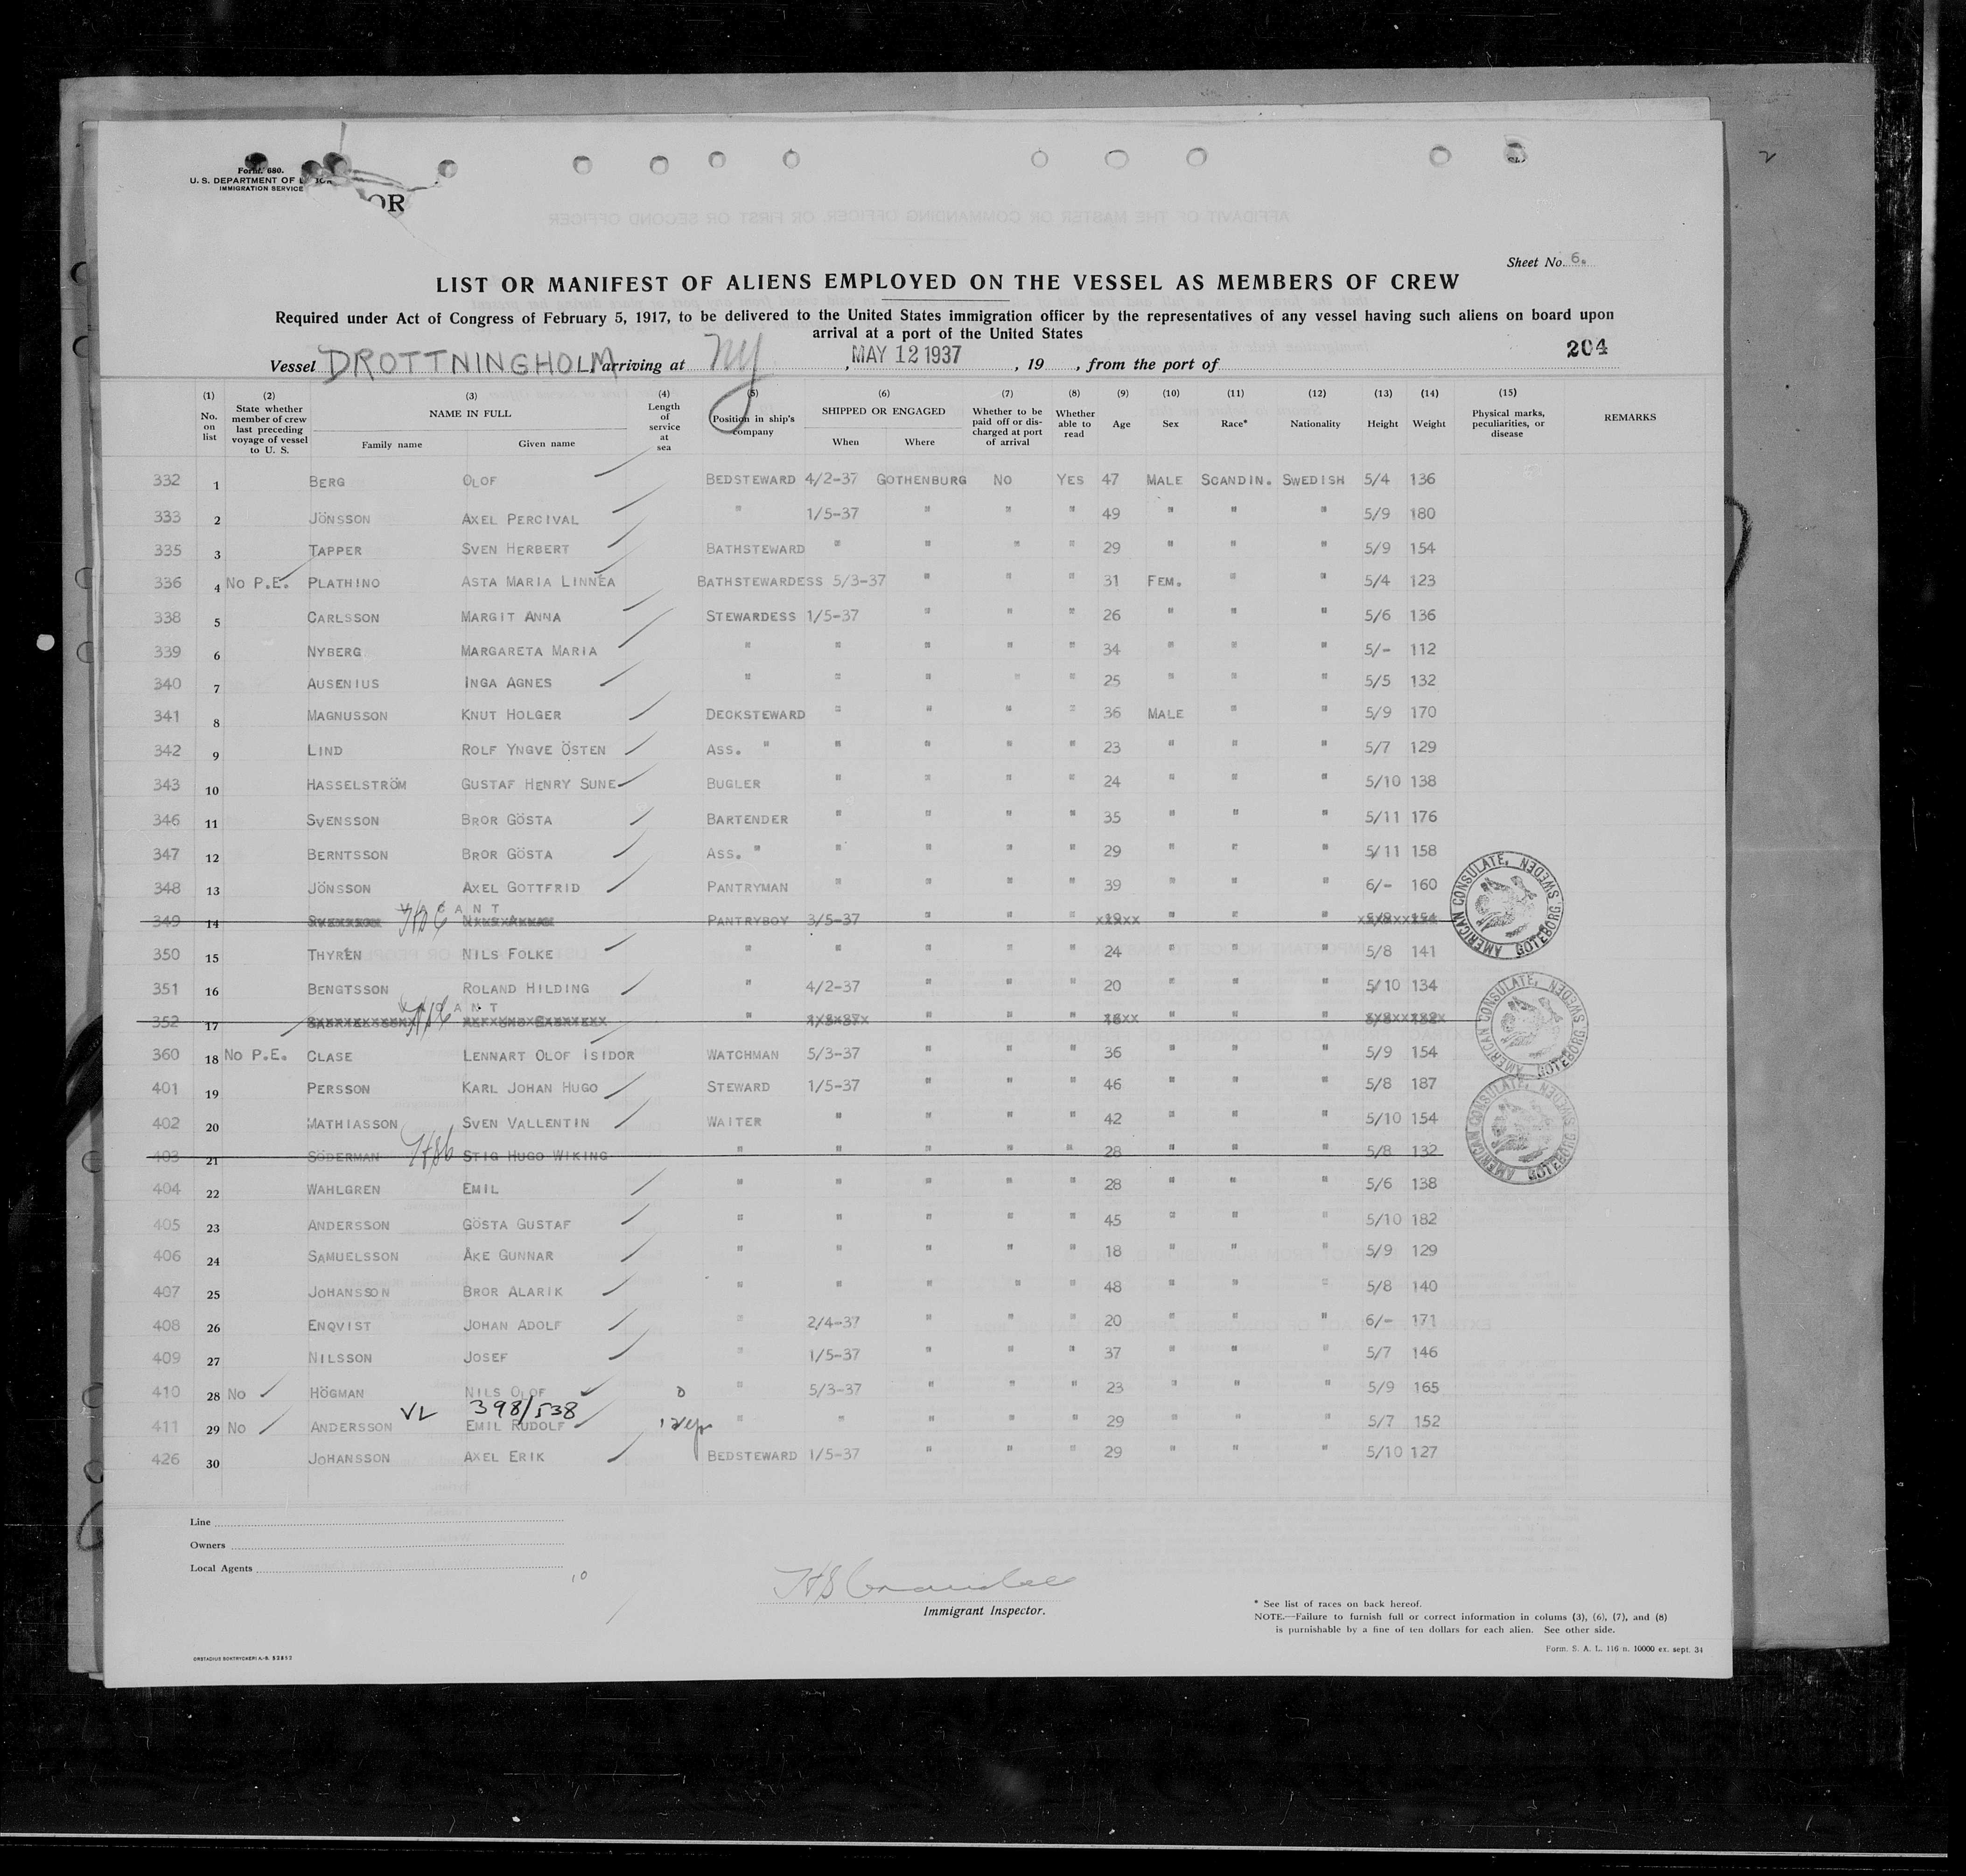 Form. 680.
U. S. DEPARTMENT OF
IMMIGRATION SERVICE
OR
Sheet No. 6.
LIST OR MANIFEST OF ALIENS EMPLOYED ON THE VESSEL AS MEMBERS OF CREW
Required under Act of Congress of February 5, 1917, to be delivered to the United States immigration officer by the representatives of any vessel having such aliens on board upon
arrival at a port of the United States
204
Vessel DROTTNINGHOLM, arriving at NY, MAY 12 1937, 19 , from the port of
(1) (2) (3) (4) (5) (6) (7) (8) (9) (10) (11) (12) (13) (14) (15)
No. on list | State whether member of crew last preceding voyage of vessel to U. S. | NAME IN FULL Family name Given name | Length of service at sea | Position in ship's company | SHIPPED OR ENGAGED When Where | Whether to be paid off or discharged at port of arrival | Whether able to read | Age | Sex | Race* | Nationality | Height | Weight | Physical marks, peculiarities, or disease | REMARKS
332 1 BERG OLOF BEDSTEWARD 4/2-37 GOTHENBURG NO YES 47 MALE SCANDIN. SWEDISH 5/4 136
333 2 JÖNSSON AXEL PERCIVAL " 1/5-37 " " " 49 " " " 5/9 180
335 3 TAPPER SVEN HERBERT BATHSTEWARD " " " " 29 " " " 5/9 154
336 4 NO P.E. PLATHINO ASTA MARIA LINNÉA BATHSTEWARDESS 5/3-37 " " " 31 FEM. " " 5/4 123
338 5 CARLSSON MARGIT ANNA STEWARDESS 1/5-37 " " " 26 " " " 5/6 136
339 6 NYBERG MARGARETA MARIA " " " " " 34 " " " 5/- 112
340 7 AUSENIUS INGA AGNES " " " " " 25 " " " 5/5 132
341 8 MAGNUSSON KNUT HOLGER DECKSTEWARD " " " " 36 MALE " " 5/9 170
342 9 LIND ROLF YNGVE ÖSTEN ASS. " " " " " 23 " " " 5/7 129
343 10 HASSELSTRÖM GUSTAF HENRY SUNE BUGLER " " " " 24 " " " 5/10 138
346 11 SVENSSON BROR GÖSTA BARTENDER " " " " 35 " " " 5/11 176
347 12 BERNTSSON BROR GÖSTA ASS. " " " " " 29 " " " 5/11 158
348 13 JÖNSSON AXEL GOTTFRID PANTRYMAN " " " " 39 " " " 6/- 160
VACANT
349 14 PANTRYBOY 3/5-37 " " " " " "
350 15 THYRÉN NILS FOLKE " " " " " 24 " " " 5/8 141
351 16 BENGTSSON ROLAND HILDING " 4/2-37 " " " 20 " " " 5/10 134
VACANT
352 17 " " " " " " "
360 18 NO P.E. CLASE LENNART OLOF ISIDOR WATCHMAN 5/3-37 " " " 36 " " " 5/9 154
401 19 PERSSON KARL JOHAN HUGO STEWARD 1/5-37 " " " 46 " " " 5/8 187
402 20 MATHIASSON SVEN VALLENTIN WAITER " " " " 42 " " " 5/10 154
403 21 SÖDERMAN STIG HUGO WIKING " " " " " 28 " " " 5/8 132
404 22 WAHLGREN EMIL " " " " " 28 " " " 5/6 138
405 23 ANDERSSON GÖSTA GUSTAF " " " " " 45 " " " 5/10 182
406 24 SAMUELSSON ÅKE GUNNAR " " " " " 18 " " " 5/9 129
407 25 JOHANSSON BROR ALARIK " " " " " 48 " " " 5/8 140
408 26 ENQVIST JOHAN ADOLF " 2/4-37 " " " 20 " " " 6/- 171
409 27 NILSSON JOSEF " 1/5-37 " " " 37 " " " 5/7 146
410 28 NO HÖGMAN NILS OLOF 0 " 5/3-37 " " " 23 " " " 5/9 165
VL 398/538
411 29 NO ANDERSSON EMIL RUDOLF " " " " " 29 " " " 5/7 152
426 30 JOHANSSON AXEL ERIK BEDSTEWARD 1/5-37 " " " 29 " " " 5/10 127
AMERICAN CONSULATE, GOTEBORG, SWEDEN
AMERICAN CONSULATE, GOTEBORG, SWEDEN
AMERICAN CONSULATE, GOTEBORG, SWEDEN
Line
Owners
Local Agents
10
Immigrant Inspector.
* See list of races on back hereof.
NOTE.—Failure to furnish full or correct information in colums (3), (6), (7), and (8)
is punishable by a fine of ten dollars for each alien. See other side.
Form. S. A. L. 116 n. 10000 ex. sept. 34
ORSTADIUS BOKTRYCKERI A.-B. 52852